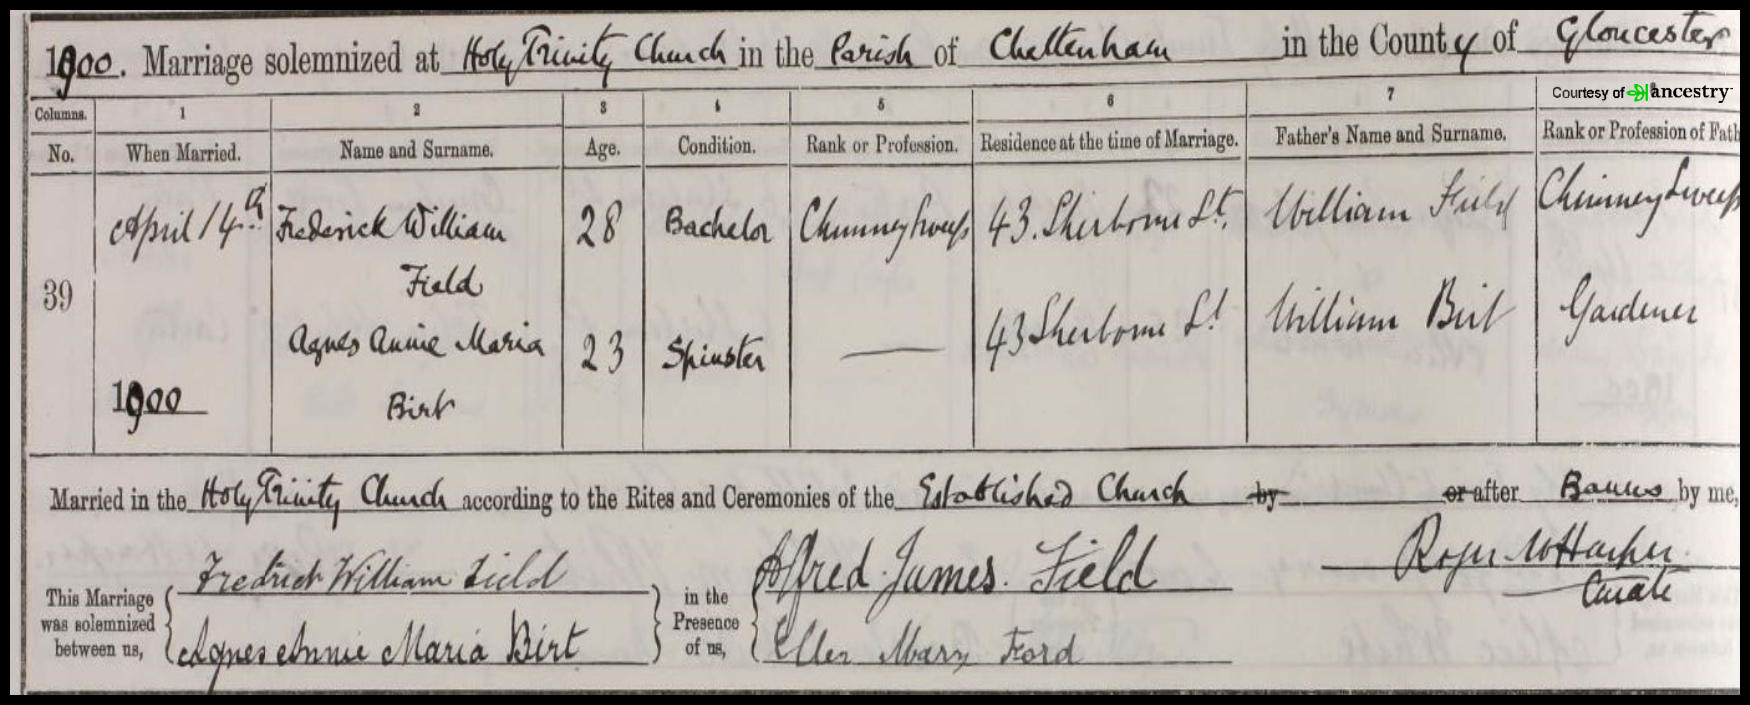 1900. Marriage solemnized at Holy Trinity Church in the Parish of Cheltenham in the County of Gloucester
Courtesy of ancestry
Columns. 1 2 3 4 5 6 7
No. When Married. Name and Surname. Age. Condition. Rank or Profession. Residence at the time of Marriage. Father's Name and Surname. Rank or Profession of Fath
39 April 14th Frederick William 28 Bachelor Chimney Sweep 43. Sherborne St. William Field Chimney Sweep
Field
Agnes Annie Maria 23 Spinster — 43 Sherborne St William Birt Gardener
1900 Birt
Married in the Holy Trinity Church according to the Rites and Ceremonies of the Established Church by or after Banns by me,
This Marriage was solemnized between us, Fredrick William Field in the Presence of us, Alfred James. Field Roger
Agnes Annie Maria Birt Ellen Mary Ford Curate